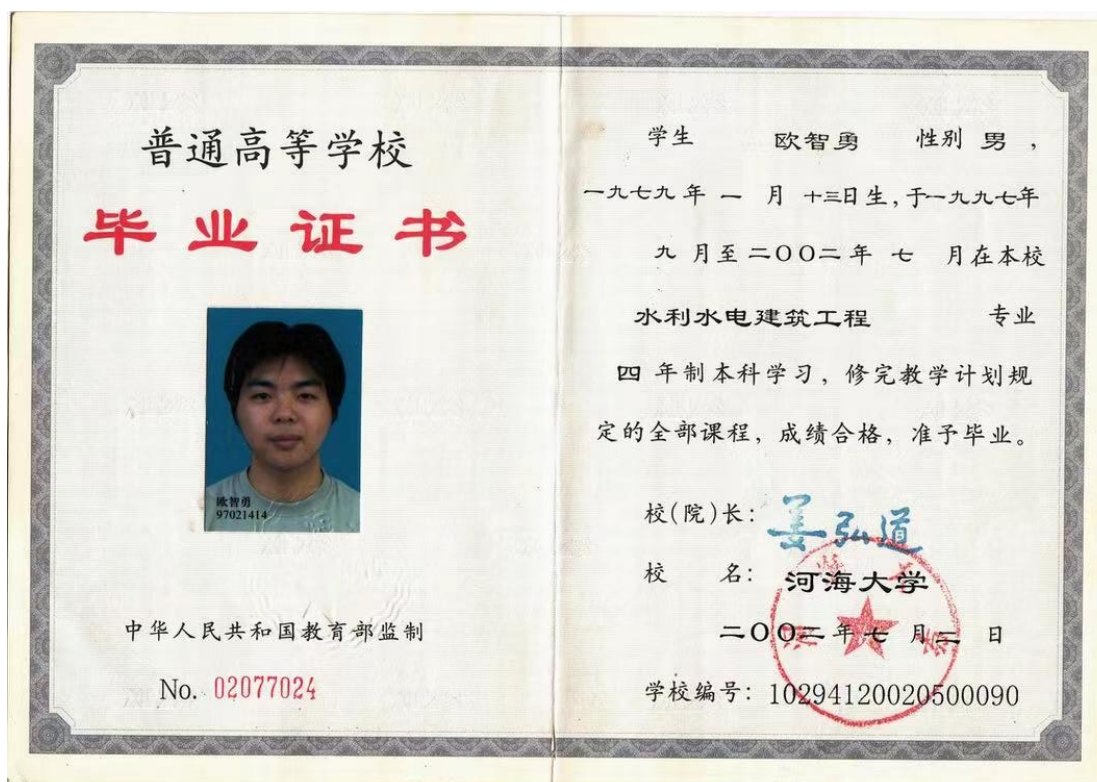 普通高等学校
毕业证书
欧智勇
97021414
中华人民共和国教育部监制
No. 02077024
学生 欧智勇 性别 男，
一九七九年 一 月 十三日生，于一九九七年
九 月至二〇〇二年 七 月在本校
水利水电建筑工程 专业
四 年制本科学习，修完教学计划规
定的全部课程，成绩合格，准予毕业。
校(院)长：姜弘道
校 名：河海大学
二〇〇二年七 月二 日
学校编号：10294120020500090